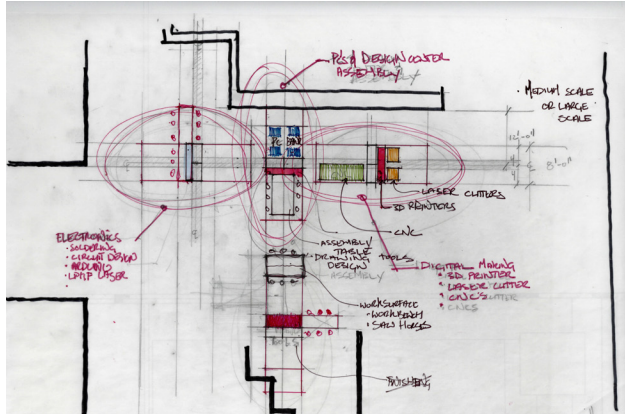 PC's & DESIGN CENTER
ASSEMBLY
• MEDIUM SCALE
OR LARGE
SCALE
12'-0"
8'-0"
4'
4'
PC BANK
LASER CUTTERS
3D PRINTERS
CNC
ELECTRONICS
• SOLDERING
• CIRCUIT DESIGN
• ARDUINO
ASSEMBLY
TABLE TOOLS
DRAWING
DESIGN
ASSEMBLY
DIGITAL MAKING
• 3D PRINTER
• LASER CUTTER
• CNC'S CUTTER
• CNCS
WORKSURFACE
• WORKBENCH
• SAW HORSES
FINISHING